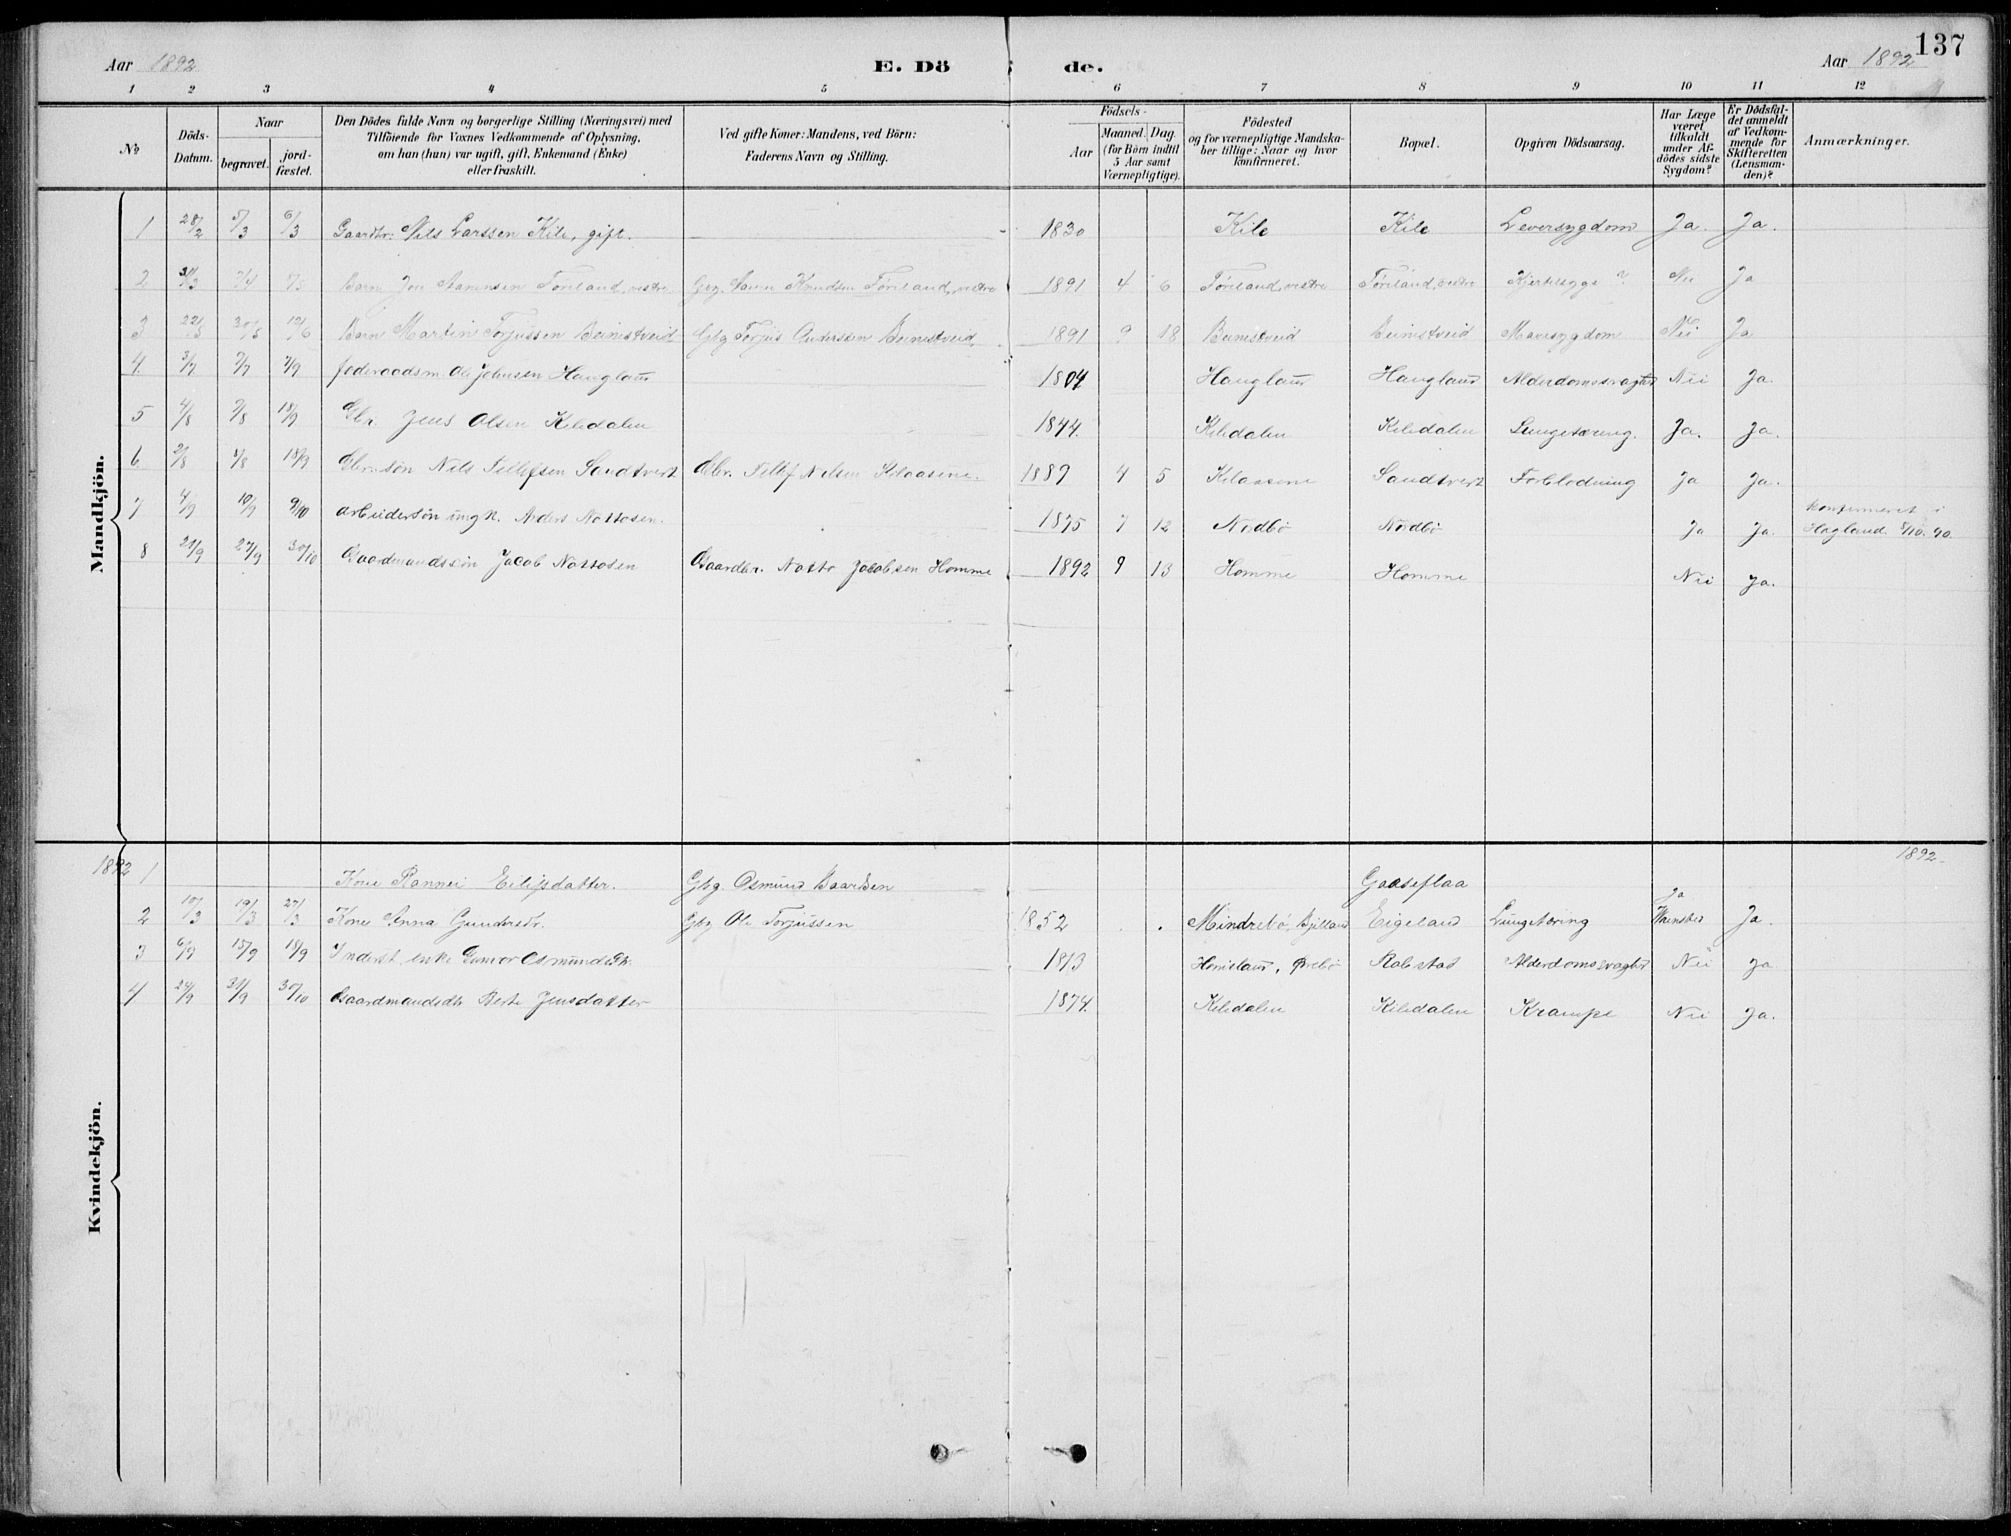 137
Aar 1892 E. Dö de. Aar 1892
1 2 3 4 5 6 7 8 9 10 11 12
№
Döds-
Datum.
Naar
begravet.
jord-
fæstet.
Den Dödes fulde Navn og borgerlige Stilling (Næringsvei) med
Tilföiende for Voxnes Vedkommende af Oplysning,
om han (hun) var ugift, gift, Enkemand (Enke)
eller fraskilt.
Ved gifte Koner: Mandens, ved Börn:
Faderens Navn og Stilling.
Födsels-
Aar
Maaned.
Dag.
(for Börn indtil
5 Aar samt
Værnepligtige).
Födested
og for værnepligtige Mandska-
ber tillige: Naar og hvor
konfirmeret.
Bopæl.
Opgiven Dödsaarsag.
Har Læge
været
tilkaldt
under Af-
dödes sidste
Sygdom?
Er Dödsfal-
det anmeldt
af Vedkom-
mende for
Skifteretten
(Lensman-
den)?
Anmærkninger.
Mandkjön.
1 28/2 5/3 6/3 Gaardbr. Nils Larssen Kile, gift. 1830 Kile Kile Leversygdom Ja. Ja.
2 31/3 7/4 7/5 Barn Jon Foreland, vestre Gbg. Knudsen Foreland, vestre 1891 4 6 Föreland, vestre Föreland, vestre ? Nei Ja
3 22/5 30/5 12/6 Barn Martin Torjussen Beinestveid Gbg. Torjus Anderssen Beinestveid 1891 9 18 Beinestveid Beinestveid Mavesygdom Nei Ja
4. 3/7 7/7 Ole Johnsen Haugland 1804 Haugland Haugland Alderdomssvaghed Nei Ja.
5 4/8 9/8 18/9 Gbr. Jens Olsen Kiledalen 1844. Kiledalen Kiledalen Lungetæring. Ja. Ja.
6 2/8 8/8 18/9 Gbr. sön Nils Tellefsen Sandtvert Gbr. Tellef Nilsen Kilaasene. 1889 4 5 Kilaasene Sandtvert Forblodning Ja Ja.
7 4/9 10/9 9/10 arbeidersön ungk. Anders Nottosen. 1875 7 12 Nordbö Nordbö Ja Ja. konfirmeret i
Hægland 5/10. 90.
8 21/9 27/9 30/10 Gaardmandssön Jacob Nottosen Gaardbr. Notto Jacobsen Homme 1892 9 13 Homme Homme Nei Ja.
Kvindekjön.
1892 1892
1 Kone Rannei Eilifsdatter. Gbg. Osmund Baardsen Gaaseflaa
2 10/3 19/3 27/3 Kone Anna Gundersdr. Gbg Ole Torjussen 1852 Mindrebö, Bjelland Eigeland Lungetæring Ja Ja.
3 6/9 15/9 18/9 Inderst enke Gunvor Osmundsdtr. 1813 Homeland, Övrebö Rabstad Alderdomssvaghed Nei Ja
4 24/9 30/10 Gaardmandsdtr Berte Jensdatter 1874. Kiledalen Kiledalen Krampe Nei Ja.